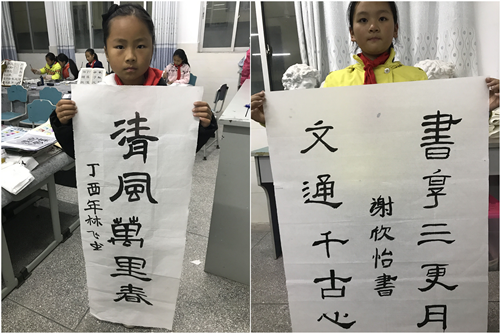 清風萬里春
丁酉年林
書享三更月
文通千古心
謝欣怡書